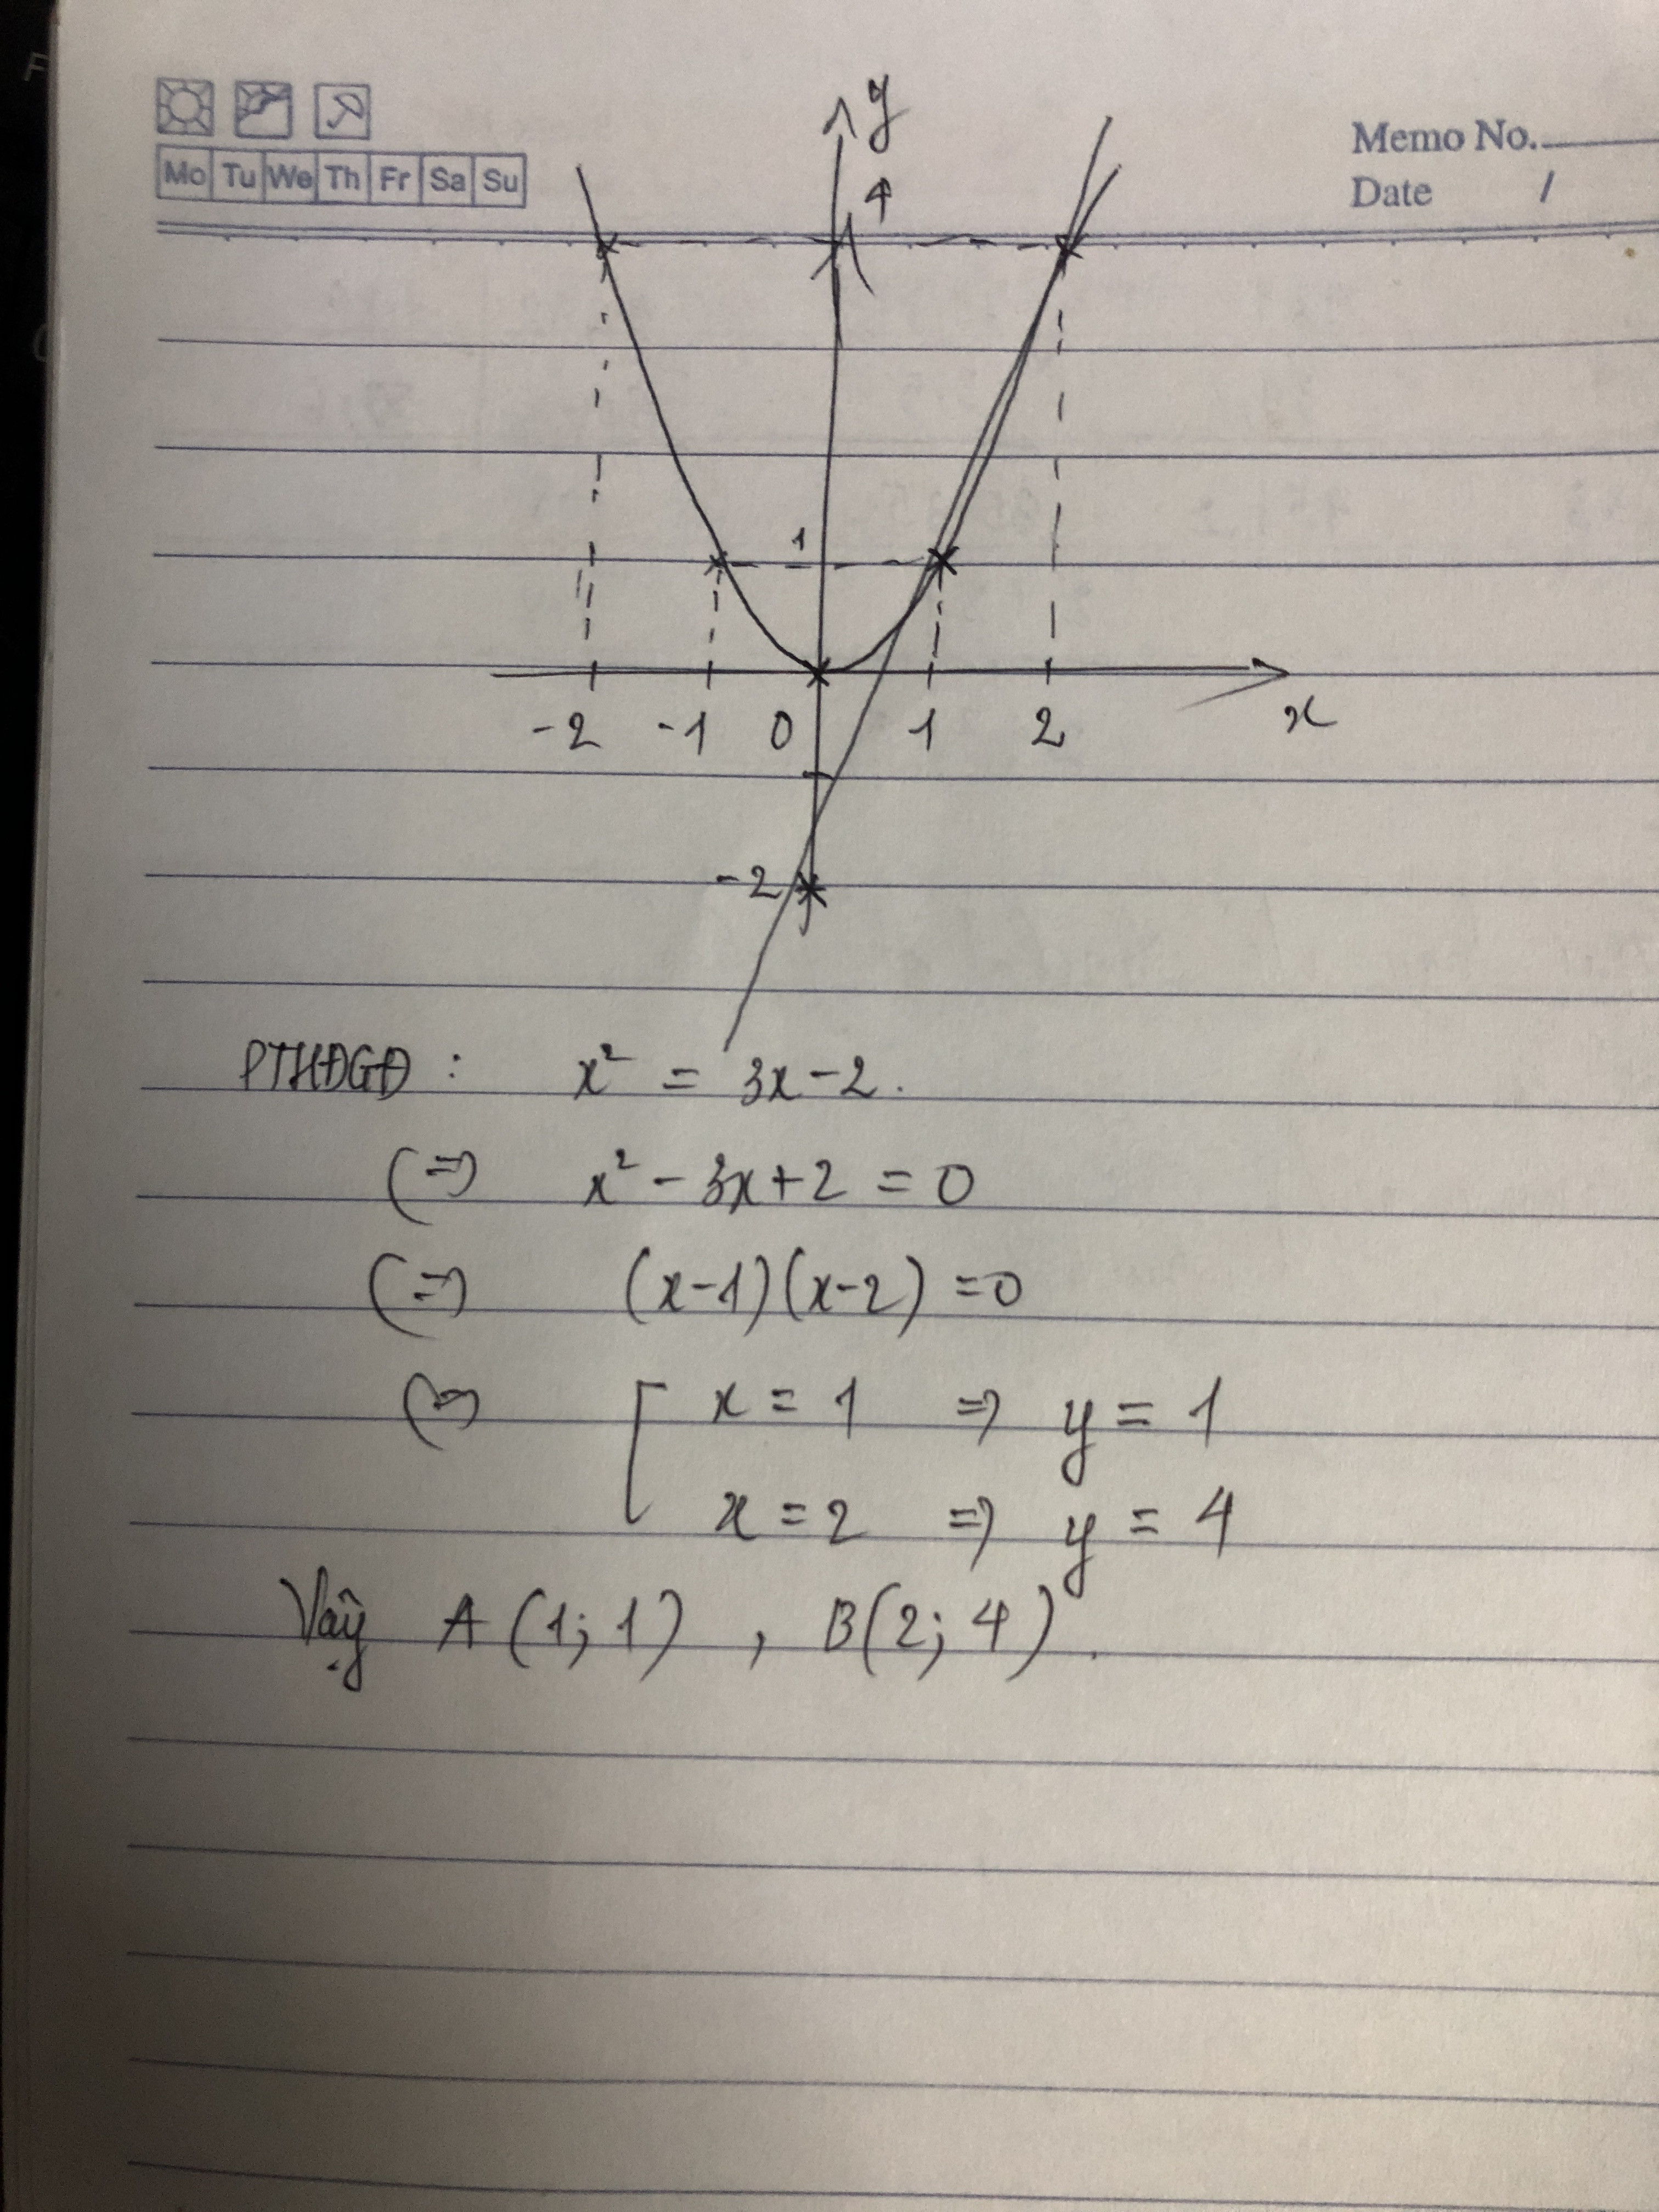 Memo No.
Mo Tu We Th Fr Sa Su
Date /
y
4
1
-2 -1 0 1 2 x
-2
PTHĐGĐ : x² = 3x-2.
(=) x² - 3x+2 = 0
(=) (x-1)(x-2) =0
(=) [ x = 1 => y = 1
x = 2 => y = 4
Vậy A (1; 1) , B(2; 4).